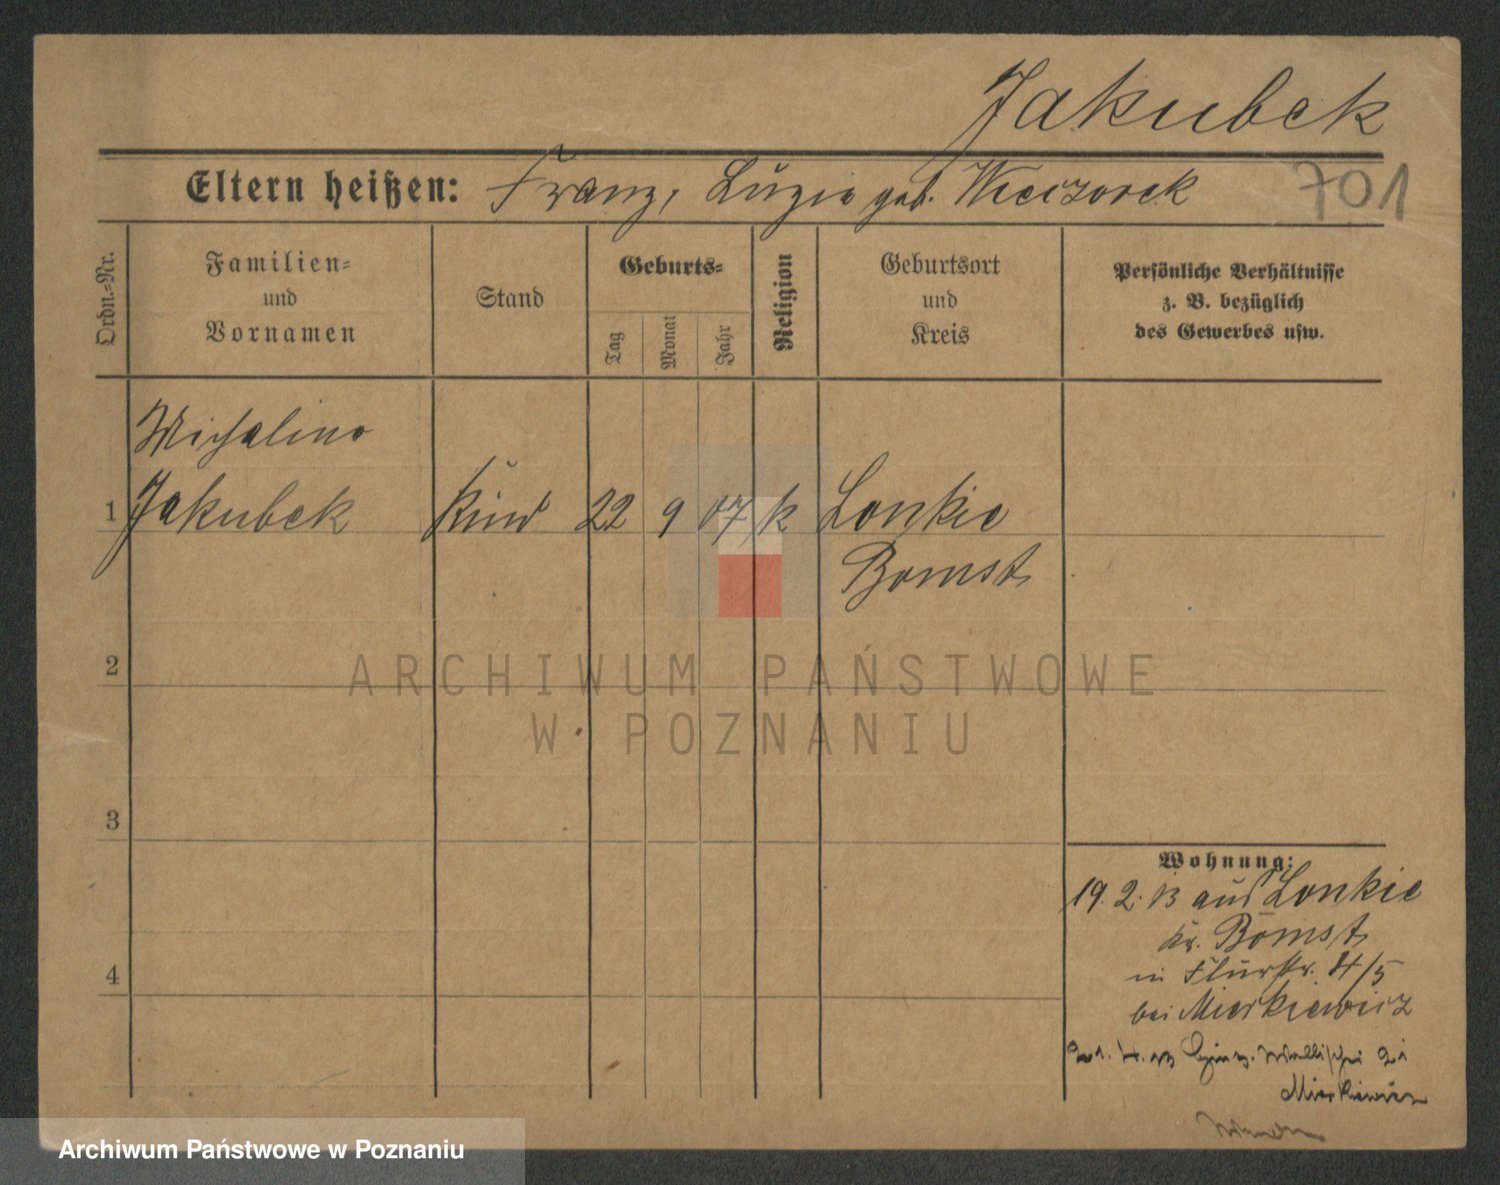 Jakubek
Eltern heißen: Franz, Luzie geb. Wieczorek
701
Ordn.-Nr.
Familien-
und
Vornamen
Stand
Geburts-
Tag
Monat
Jahr
Religion
Geburtsort
und
Kreis
Persönliche Verhältnisse
z. B. bezüglich
des Gewerbes usw.
Michalina
1 Jakubek Kind 22 9 07 k Lonkie
Bomst
2
ARCHIWUM PAŃSTWOWE
W POZNANIU
3
4
Wohnung:
19. 2. 13 aus Lonkie
Kr. Bomst
in Flurstr. 4/5
bei Mierkiewicz
21. 4. 13 Wallischei
Mierkiewicz
Archiwum Państwowe w Poznaniu